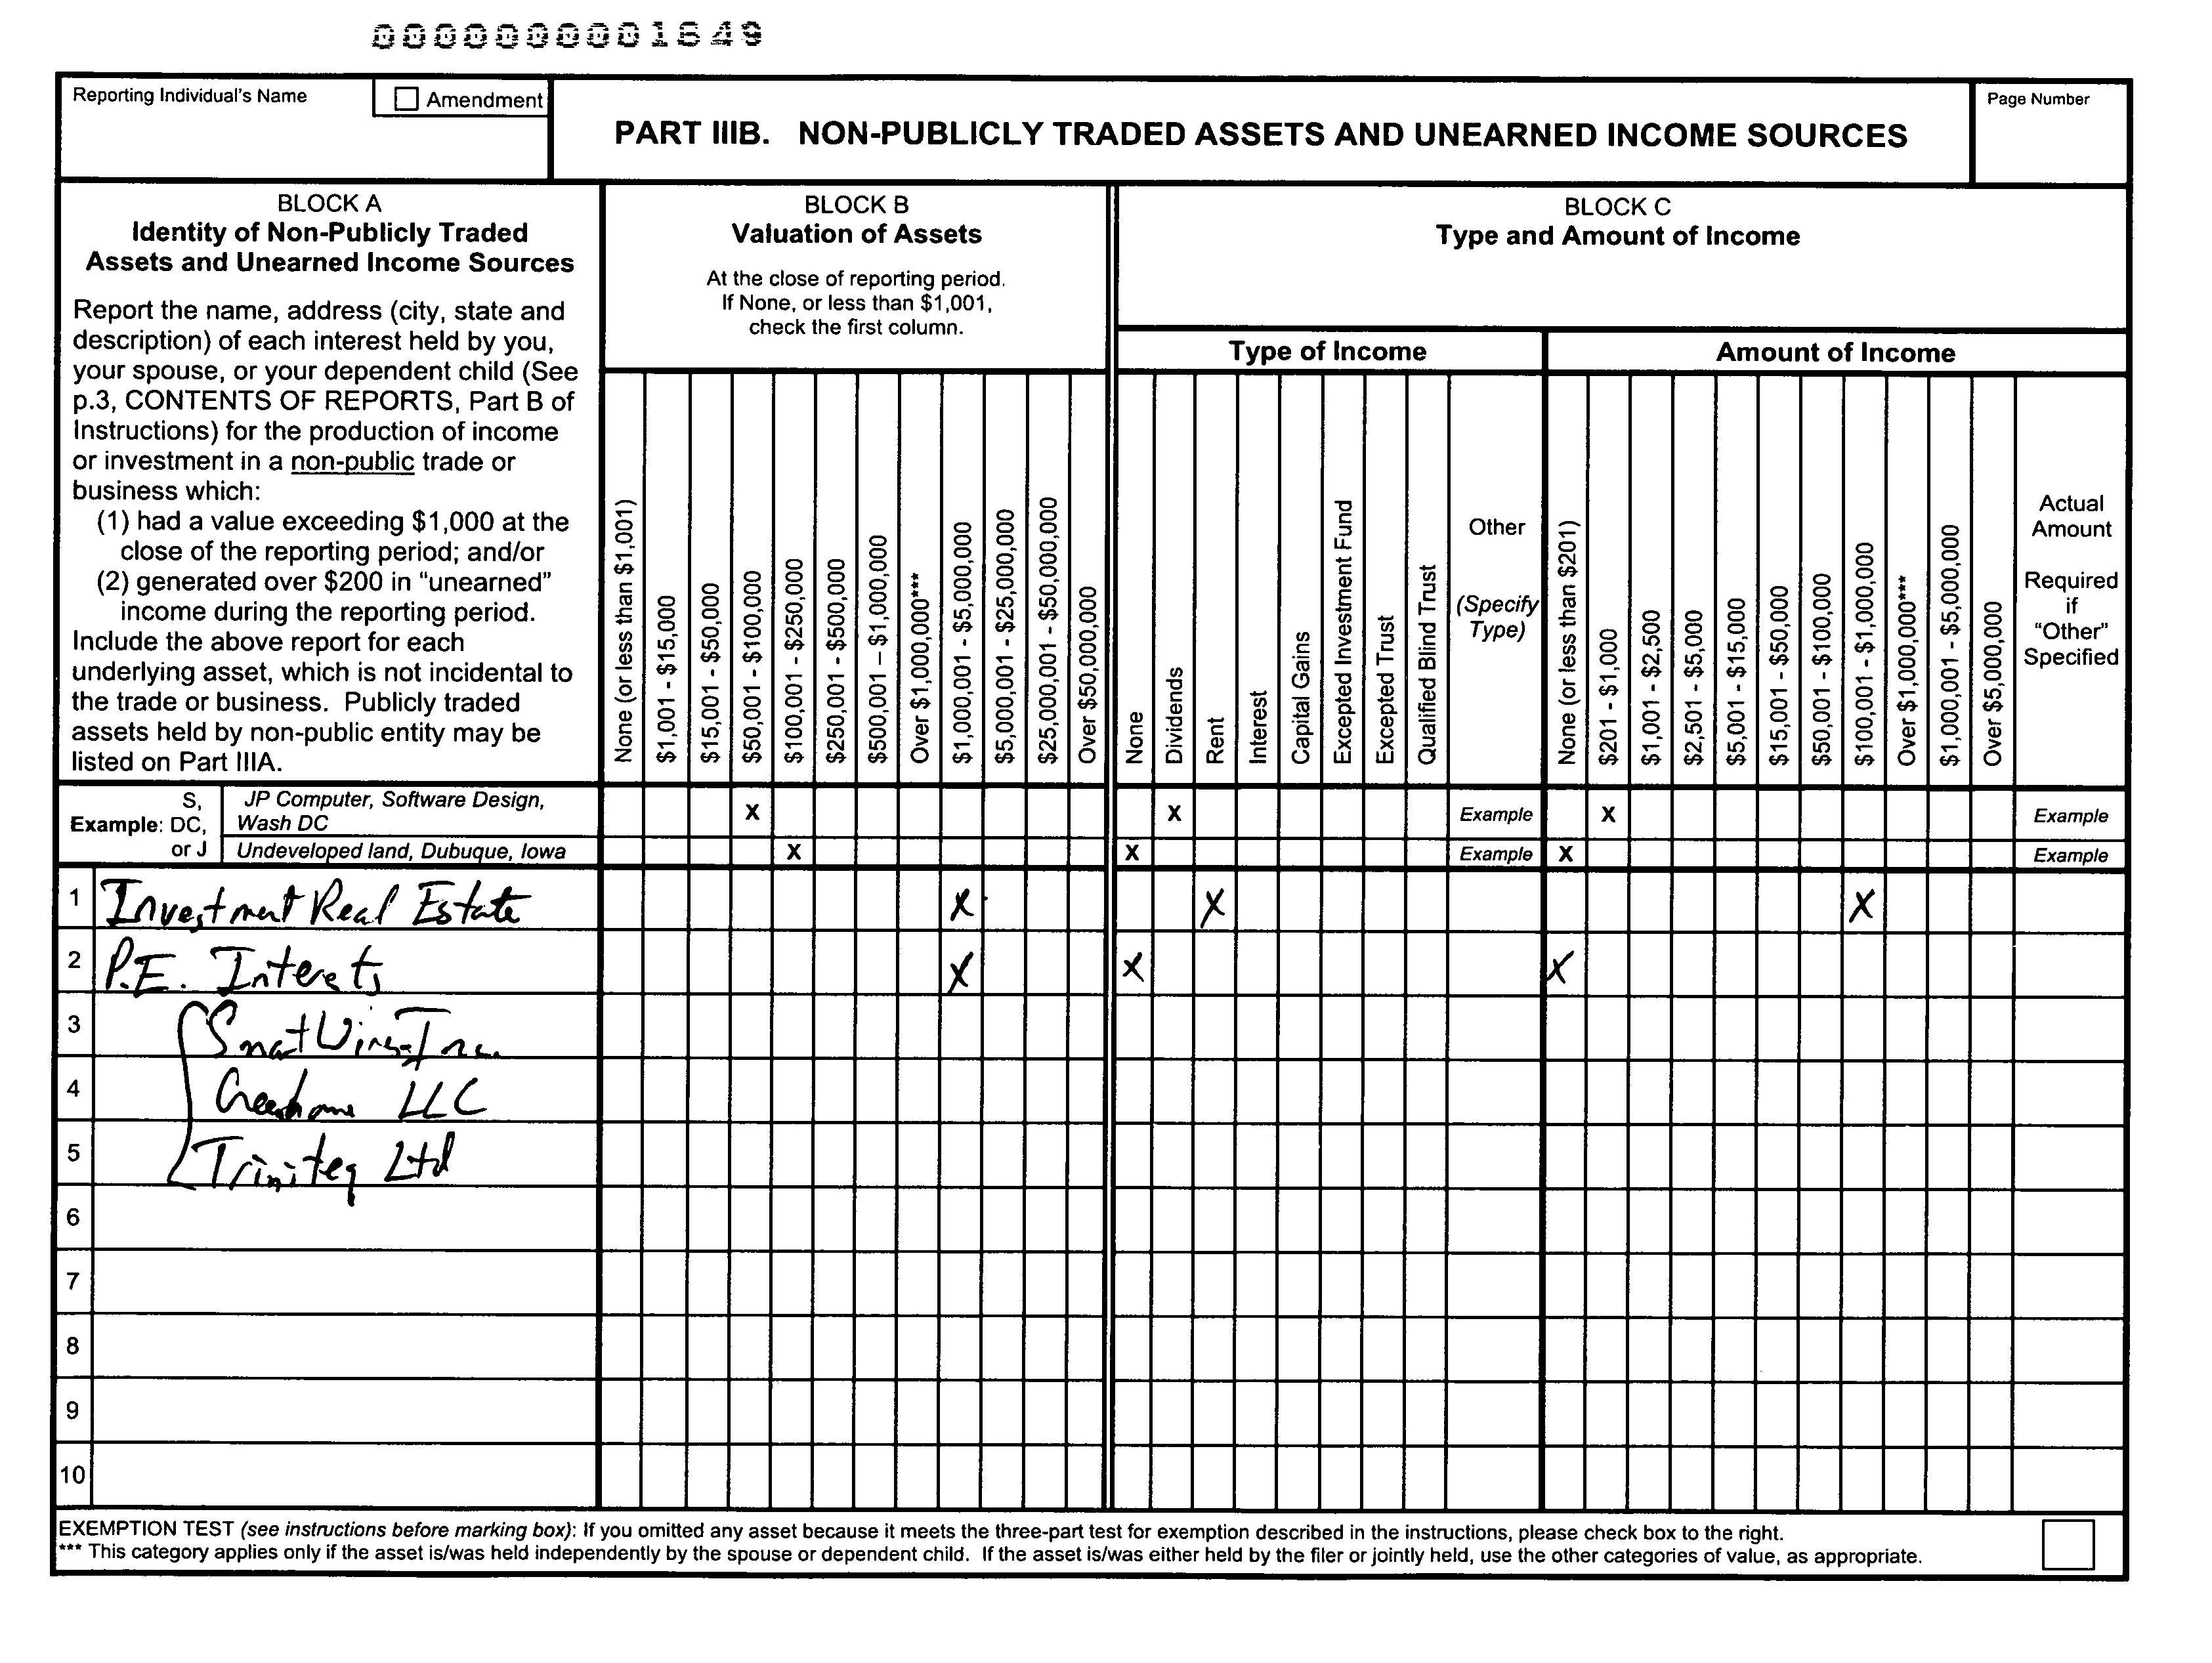 0000000001649
Reporting Individual's Name
Amendment
PART IIIB. NON-PUBLICLY TRADED ASSETS AND UNEARNED INCOME SOURCES
Page Number
BLOCK A
Identity of Non-Publicly Traded
Assets and Unearned Income Sources
Report the name, address (city, state and
description) of each interest held by you,
your spouse, or your dependent child (See
p.3, CONTENTS OF REPORTS, Part B of
Instructions) for the production of income
or investment in a non-public trade or
business which:
(1) had a value exceeding $1,000 at the
close of the reporting period; and/or
(2) generated over $200 in “unearned”
income during the reporting period.
Include the above report for each
underlying asset, which is not incidental to
the trade or business. Publicly traded
assets held by non-public entity may be
listed on Part IIIA.
BLOCK B
Valuation of Assets
At the close of reporting period.
If None, or less than $1,001,
check the first column.
None (or less than $1,001)
$1,001 - $15,000
$15,001 - $50,000
$50,001 - $100,000
$100,001 - $250,000
$250,001 - $500,000
$500,001 – $1,000,000
Over $1,000,000***
$1,000,001 - $5,000,000
$5,000,001 - $25,000,000
$25,000,001 - $50,000,000
Over $50,000,000
BLOCK C
Type and Amount of Income
Type of Income
None
Dividends
Rent
Interest
Capital Gains
Excepted Investment Fund
Excepted Trust
Qualified Blind Trust
Other
(Specify
Type)
Amount of Income
None (or less than $201)
$201 - $1,000
$1,001 - $2,500
$2,501 - $5,000
$5,001 - $15,000
$15,001 - $50,000
$50,001 - $100,000
$100,001 - $1,000,000
Over $1,000,000***
$1,000,001 - $5,000,000
Over $5,000,000
Actual
Amount
Required
if
“Other”
Specified
Example: S, DC, or J
JP Computer, Software Design,
Wash DC X X Example X Example
Undeveloped land, Dubuque, Iowa X X Example X Example
1 Investment Real Estate X X X
2 P.E. Interests X X X
3 Smart Wires Inc.
4 LLC
5 Triniteq Ltd
6
7
8
9
10
EXEMPTION TEST (see instructions before marking box): If you omitted any asset because it meets the three-part test for exemption described in the instructions, please check box to the right.
*** This category applies only if the asset is/was held independently by the spouse or dependent child. If the asset is/was either held by the filer or jointly held, use the other categories of value, as appropriate.